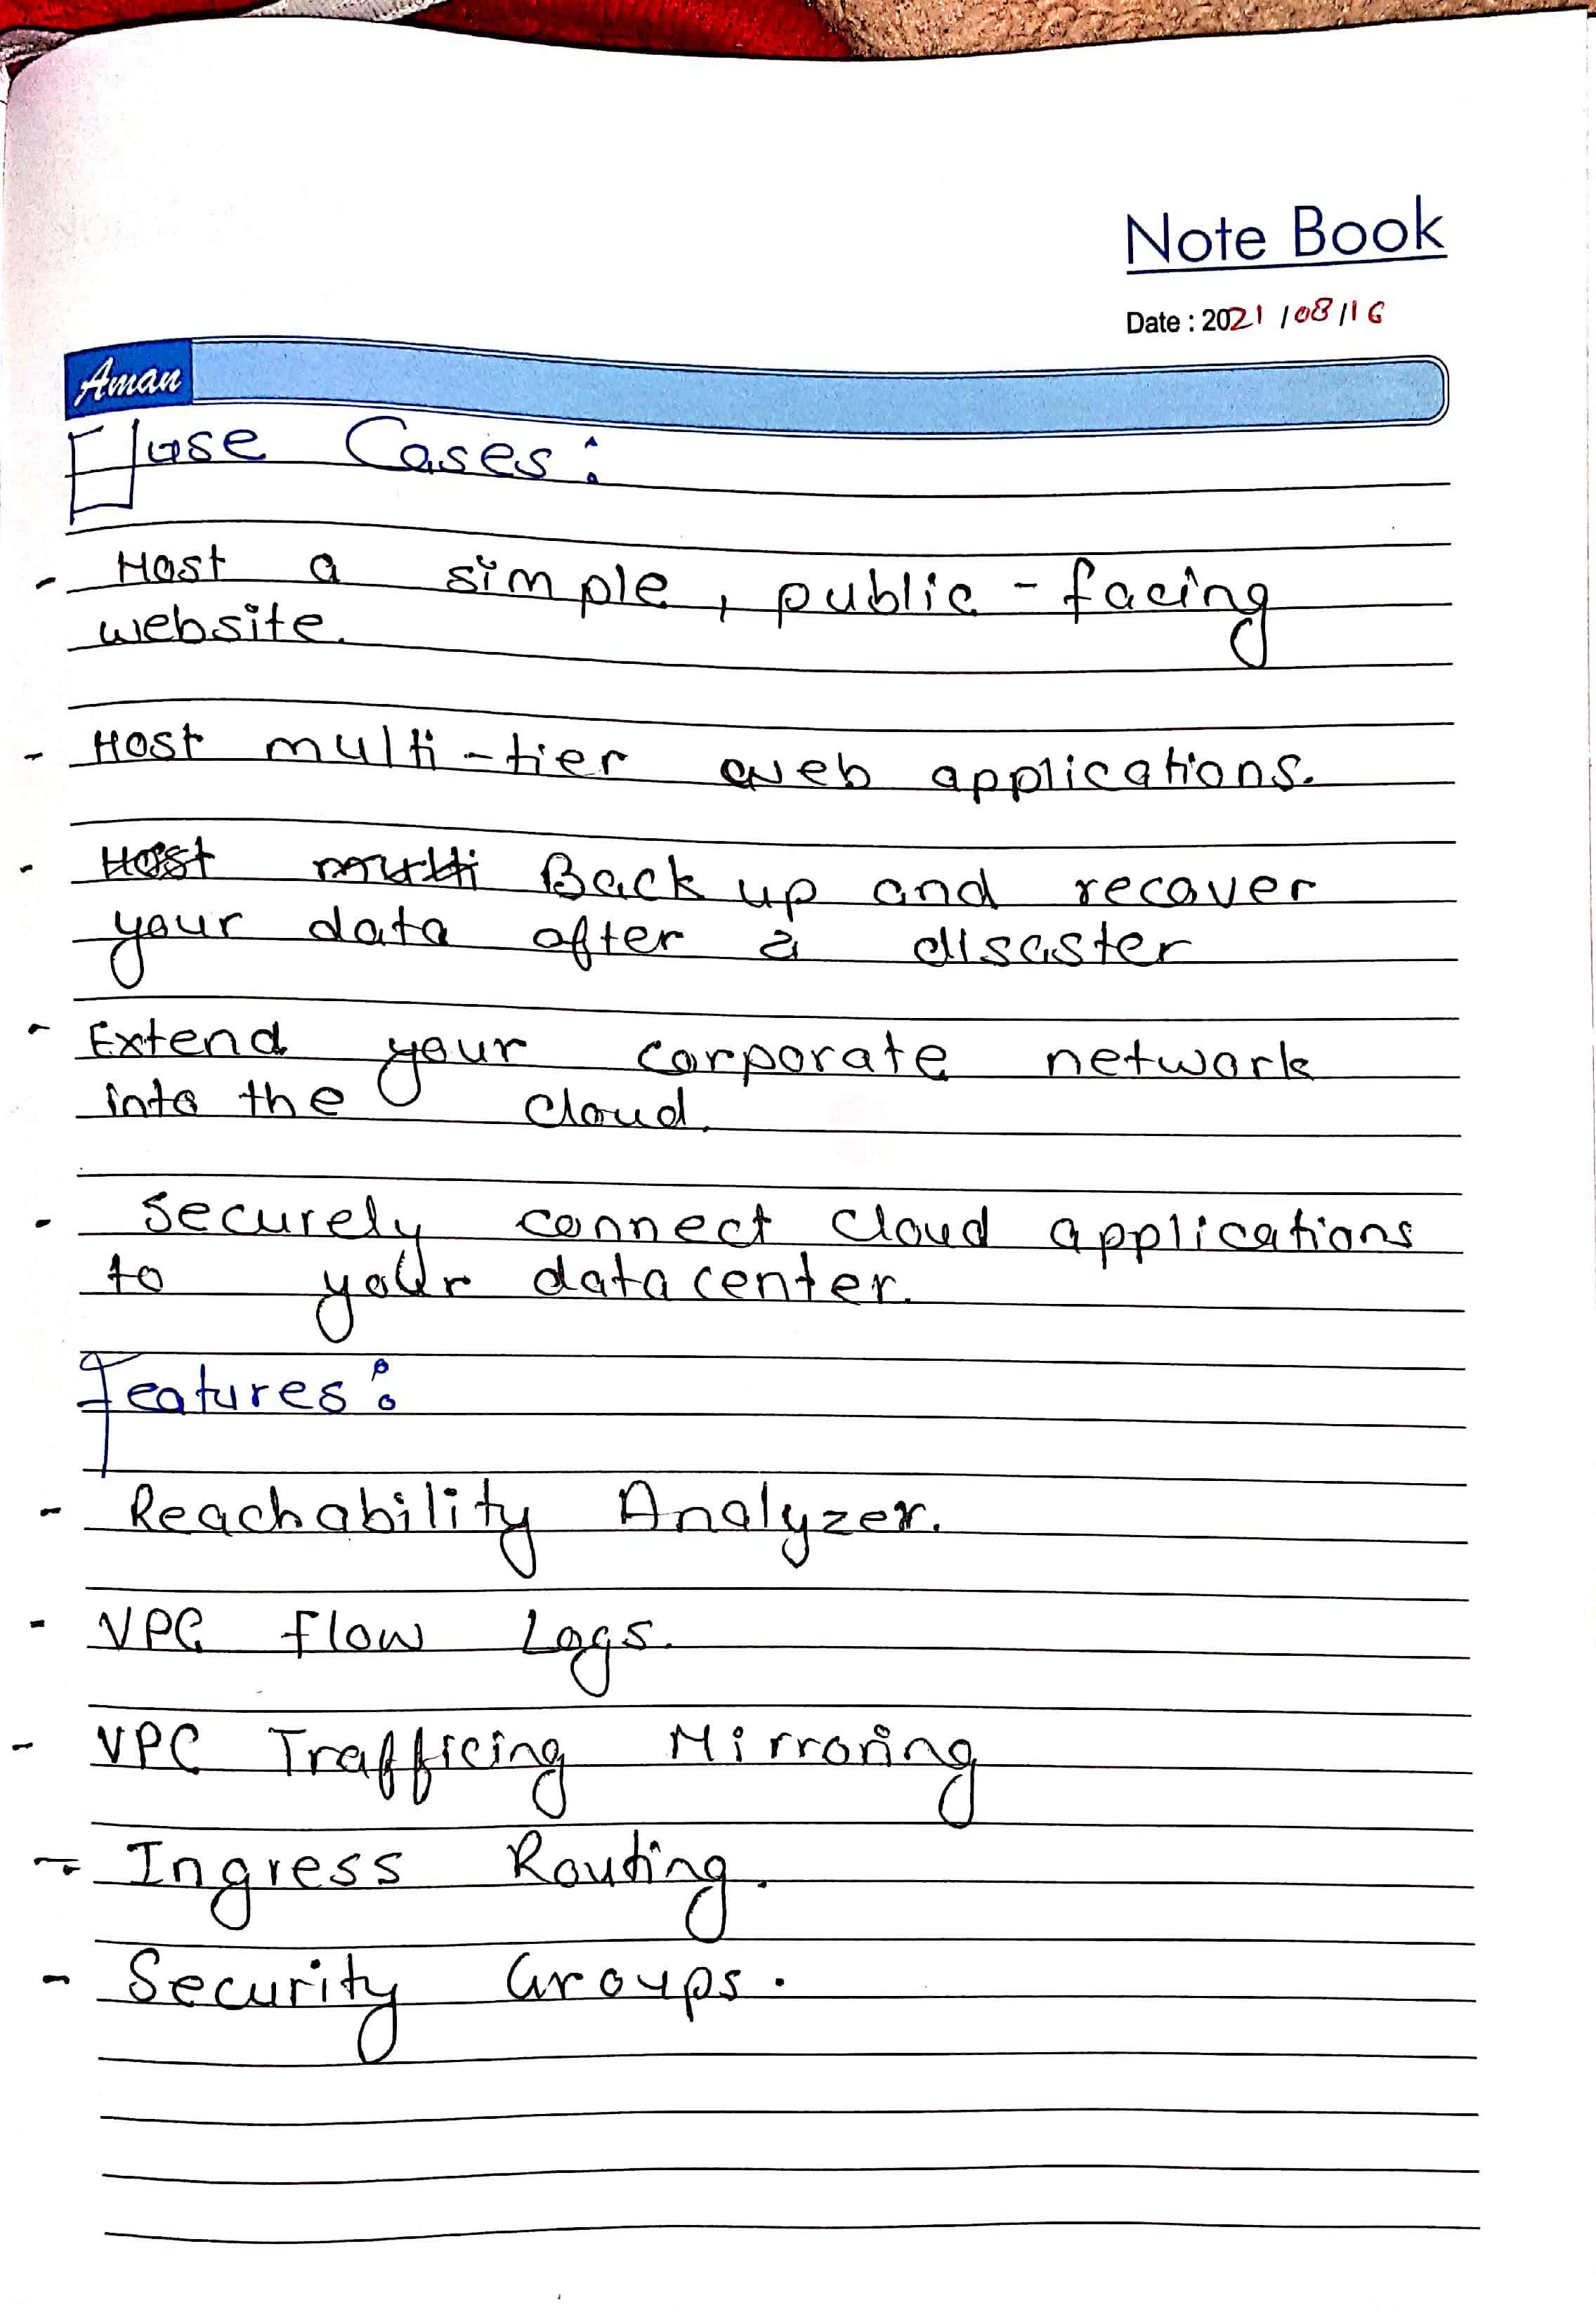 Note Book
Date : 2021/08/16
Aman
Use Cases:
- Host a simple, public-facing
website.
- Host multi-tier web applications.
- Host multi Back up and recover
your data after a disaster
- Extend your corporate network
into the cloud.
- Securely connect cloud applications
to your datacenter.
Features:
- Reachability Analyzer.
- VPC flow Logs.
- VPC Trafficing Mirroring
- Ingress Routing.
- Security Groups.